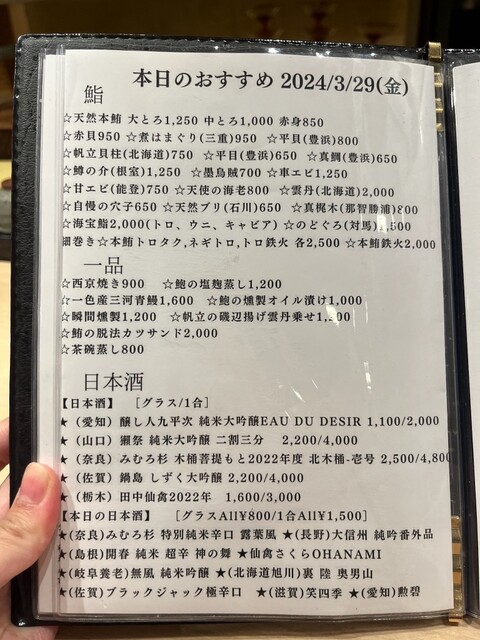 本日のおすすめ 2024/3/29(金)
鮨
☆天然本鮪 大とろ1,250 中とろ1,000 赤身850
☆赤貝950 ☆煮はまぐり(三重)950 ☆平貝(豊浜)800
☆帆立貝柱(北海道)750 ☆平目(豊浜)650 ☆真鯛(豊浜)650
☆鱒の介(根室)1,250 ☆墨烏賊700 ☆車エビ1,250
☆甘エビ(能登)750 ☆天使の海老800 ☆雲丹(北海道)2,000
☆自慢の穴子650 ☆天然ブリ(石川)650 ☆真梶木(那智勝浦)800
☆海宝鮨2,000(トロ、ウニ、キャビア) ☆のどぐろ(対馬)1,500
細巻き☆本鮪トロタク,ネギトロ,トロ鉄火 各2,500 ☆本鮪鉄火2,000
一品
☆西京焼き900 ☆鮑の塩麹蒸し1,200
☆一色産三河青鰻1,600 ☆鮑の燻製オイル漬け1,000
☆瞬間燻製1,200 ☆帆立の磯辺揚げ雲丹乗せ1,300
☆鮪の脱法カツサンド2,000
☆茶碗蒸し800
日本酒
【日本酒】 [グラス/1合]
★(愛知) 醸し人九平次 純米大吟醸EAU DU DESIR 1,100/2,000
★(山口) 獺祭 純米大吟醸 二割三分 2,200/4,000
★(奈良) みむろ杉 木桶菩提もと2022年度 北木桶-壱号 2,500/4,800
★(佐賀) 鍋島 しずく大吟醸 2,200/4,000
★(栃木) 田中仙禽2022年 1,600/3,000
【本日の日本酒】 [グラスAll¥800/1合All¥1,500]
★(奈良)みむろ杉 特別純米辛口 露葉風 ★(長野)大信州 純吟番外品
★(島根)開春 純米 超辛 神の舞 ★仙禽さくらOHANAMI
★(岐阜養老)無風 純米吟醸 ★(北海道旭川)裏 陸 奥男山
★(佐賀)ブラックジャック極辛口 ★(滋賀)笑四季 ★(愛知)勲碧